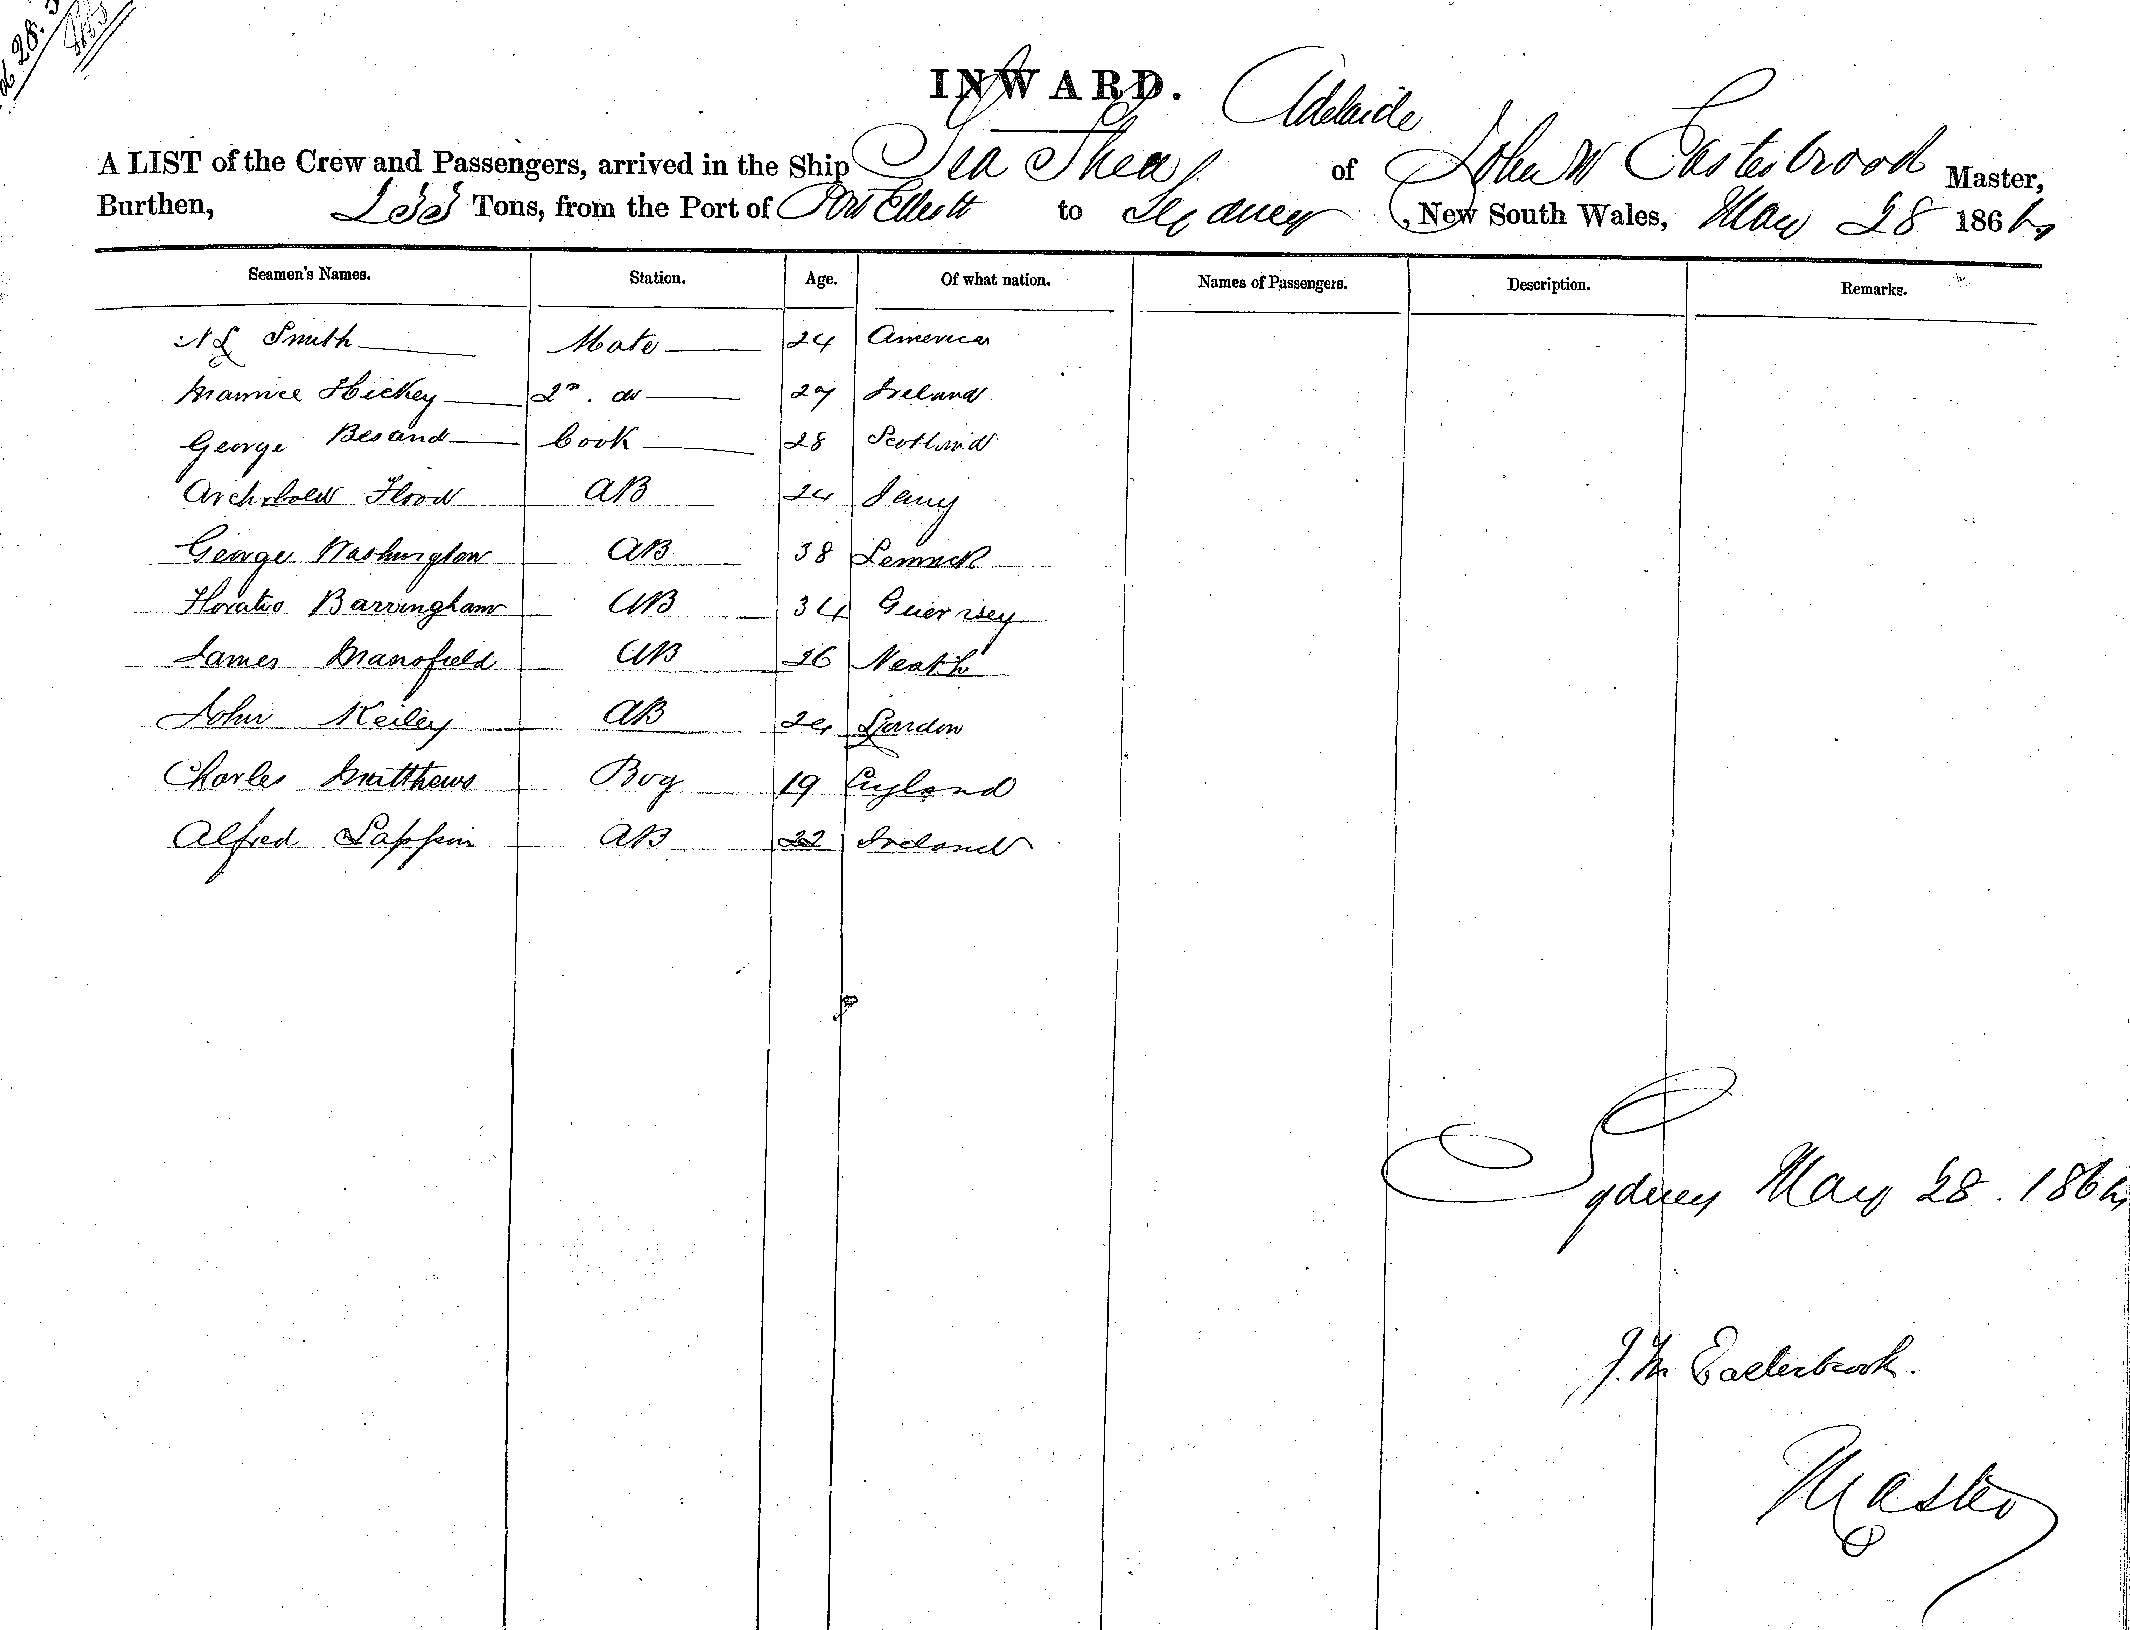 28.
INWARD.
Adelaide
A LIST of the Crew and Passengers, arrived in the Ship Sea Shea of John W Easterbrook Master,
Burthen, 233 Tons, from the Port of Port Elliott to Sydney, New South Wales, May 28 186
Seamen's Names. Station. Age. Of what nation. Names of Passengers. Description. Remarks.
N L Smith Mate 24 America
Maurice Hickey 2nd do 27 Ireland
George Besand Cook 28 Scotland
Archibald Flood AB 24
George Washington AB 38
Horatio Barringham AB 34 Guernsey
James Mansfield AB 26 Neath
John Keiley AB 24 London
Charles Matthews Boy 19 England
Alfred Lappin AB 22 Ireland
Sydney May 28. 186
J. W Easterbrook.
Master